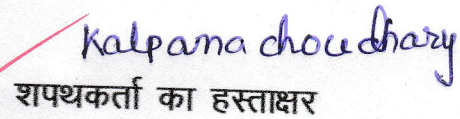 Kalpana choudhary
शपथकर्ता का हस्ताक्षर